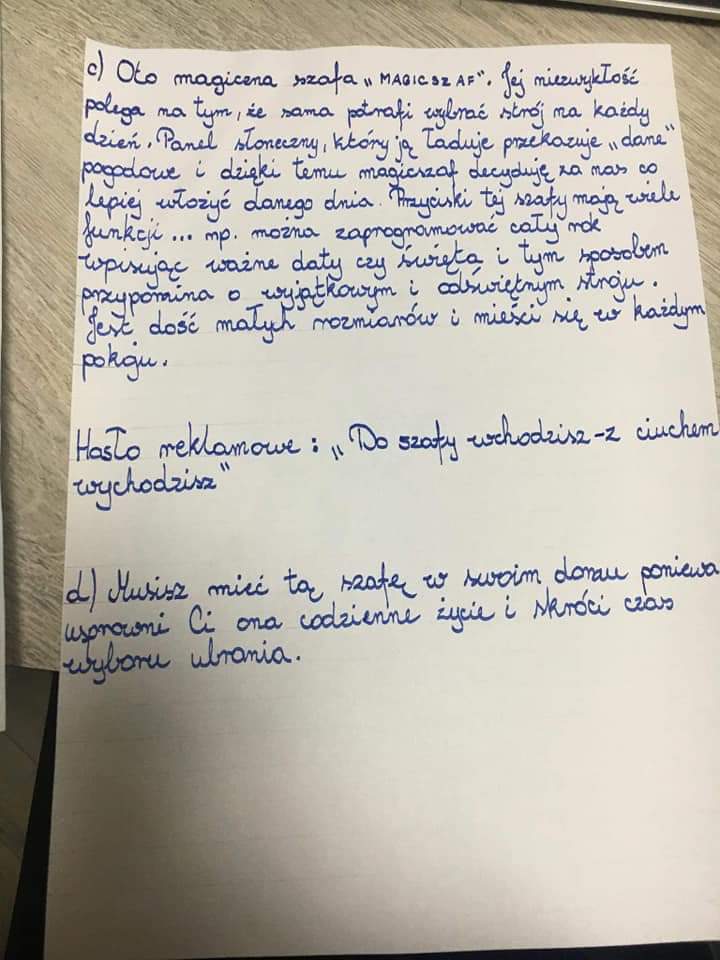 c) Oto magiczna szafa „MAGICSZAF". Jej niezwykłość
polega na tym, że sama potrafi wybrać strój na każdy
dzień. Panel słoneczny, który ją ładuje przekazuje „dane"
pogodowe i dzięki temu magicszaf decyduję za nas co
lepiej włożyć danego dnia. Przyciski tej szafy mają wiele
funkcji... np. można zaprogramować cały rok
wpisując ważne daty czy święta i tym sposobem
przypomina o wyjątkowym i odświętnym stroju.
Jest dość małych rozmiarów i mieści się w każdym
pokoju.
Hasło reklamowe: „Do szafy wchodzisz-z ciuchem
wychodzisz"
d) Musisz mieć tą szafę w swoim domu poniewa
usprawni Ci ona codzienne życie i skróci czas
wyboru ubrania.